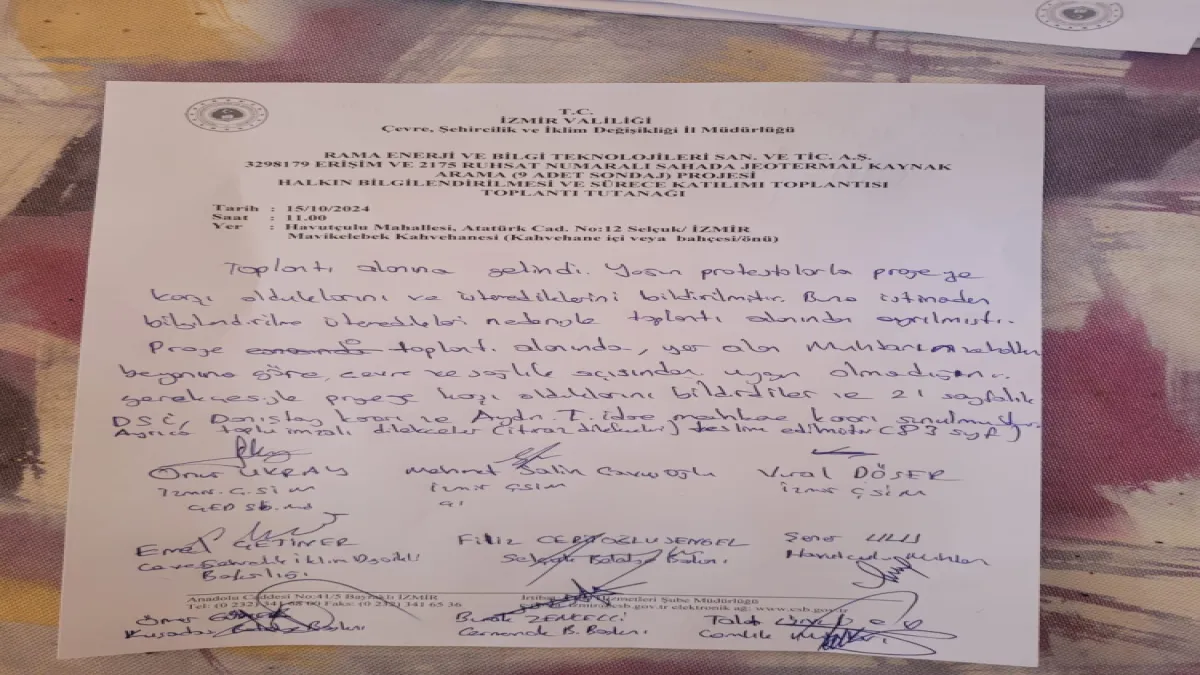 T.C.
İZMİR VALİLİĞİ
Çevre, Şehircilik ve İklim Değişikliği İl Müdürlüğü
RAMA ENERJİ VE BİLGİ TEKNOLOJİLERİ SAN. VE TİC. A.Ş.
3298179 ERİŞİM VE 2175 RUHSAT NUMARALI SAHADA JEOTERMAL KAYNAK
ARAMA (9 ADET SONDAJ) PROJESİ
HALKIN BİLGİLENDİRİLMESİ VE SÜRECE KATILIMI TOPLANTISI
TOPLANTI TUTANAĞI
Tarih : 15/10/2024
Saat : 11.00
Yer : Havutçulu Mahallesi, Atatürk Cad. No:12 Selçuk/ İZMİR
Mavikelebek Kahvehanesi (Kahvehane içi veya bahçesi/önü)
Toplantı alanına gelindi. Yoğun protestolarla projeye
karşı olduklarını ve istemediklerini bildirilmiştir. Buna istinaden
bilgilendirilme istemedikleri nedeniyle toplantı alanından ayrılmıştır.
Proje toplantı alanında, yer alan Muhtar
beyanına göre, çevre ve sağlık açısından uygun olmadığını
gerekçesiyle projeye karşı olduklarını bildirdiler ve 21 sayfalık
DSİ, Danıştay kararı ve Aydın 1. idare mahkeme kararı sunulmuştur.
Ayrıca toplu imzalı dilekçeler (itiraz dilekçeleri) teslim edilmiştir (83 syf)
Onur
Mehmet Salih
Vural DÖŞER
İzmir Ç.Ş.İ.M
İzmir ÇŞİM
İzmir ÇŞİM
ÇED Şb. Md
Emel ÇETİNER
Filiz CERİTOĞLU SENGEL
Çevre Şehircilik İklim Değişikl
Selçuk Belediye Başkanı
Bakanlığı
Anadolu Caddesi No:41/5 Bayraklı İZMİR
Tel: (0 232) 341 68 00 Faks: (0 232) 341 65 36
Müdürlüğü
csb.gov.tr elektronik ağ: www.csb.gov.tr
Ömer
Talat
Kuşadası Belediye Başkanı
B. Başkanı